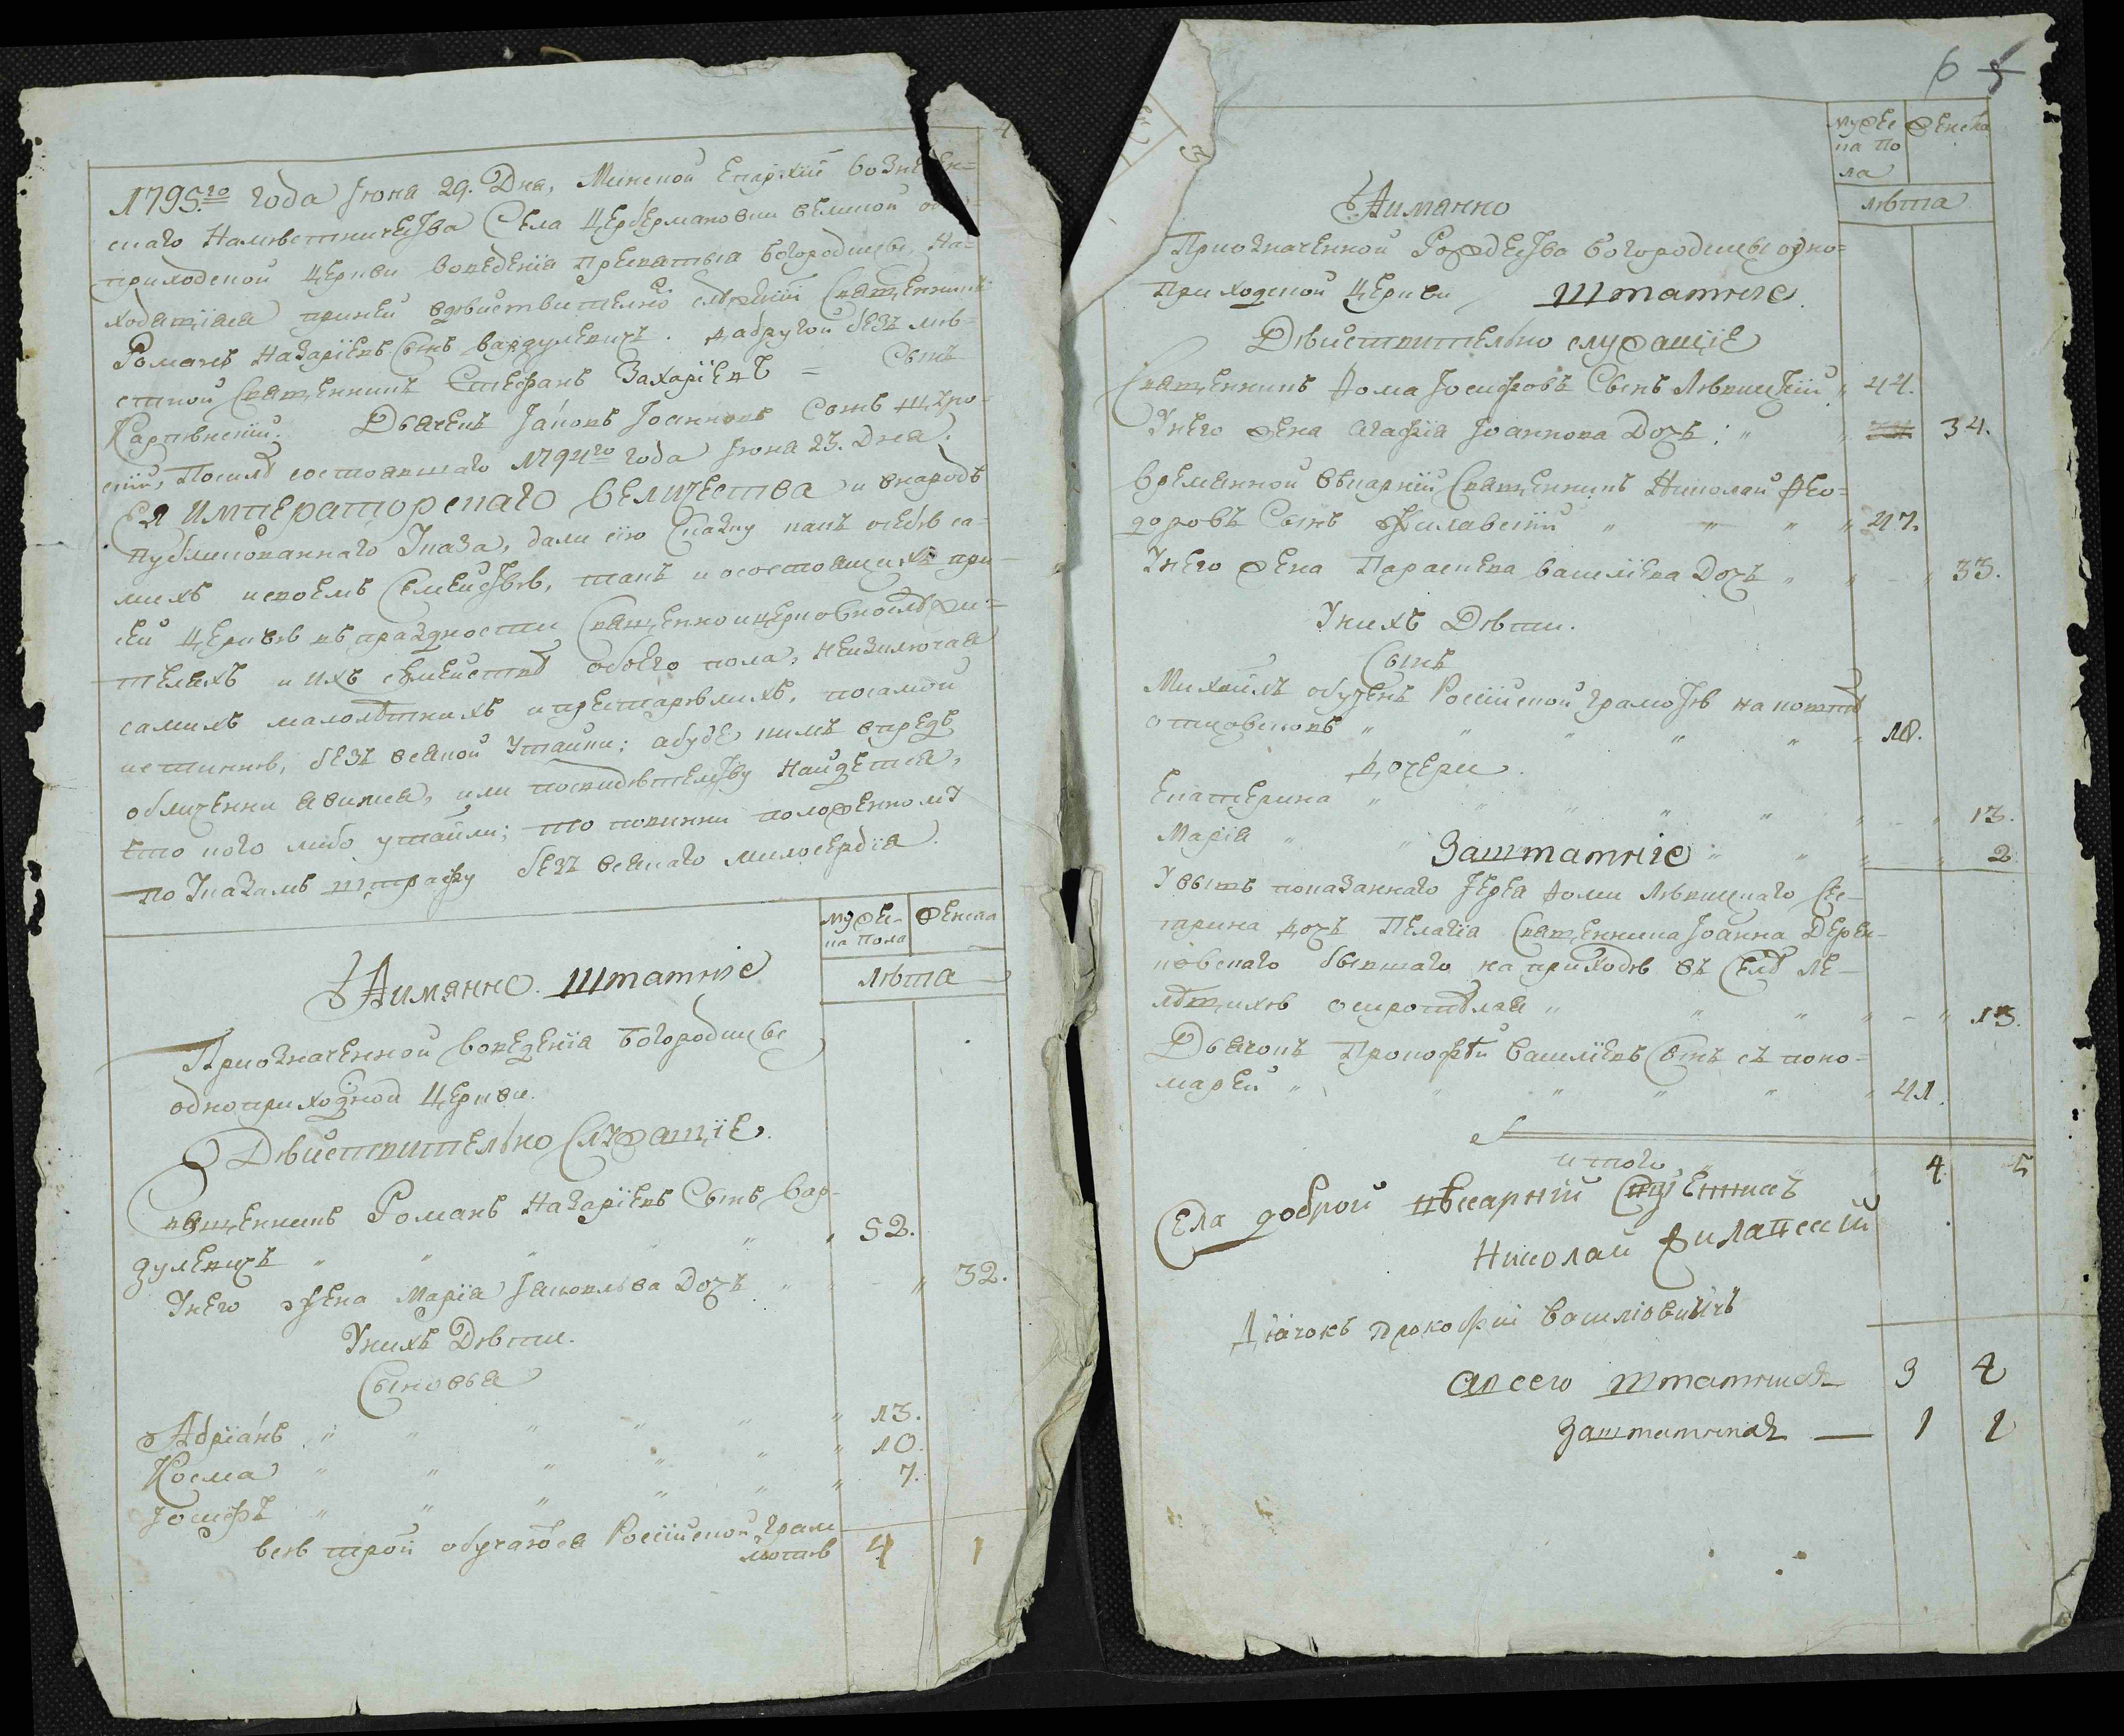 4
1795.го года Іюня 29. Дня, Минской Епархіи Вознесен=
скаго Намѣстничества Села Цербермановки великой одно
приходской Церкви воведенія Пресвятыя Богородицы, На=
ходящіися приней вдѣйствителной службѣ Священникъ
Романъ Назаріевъ Сынъ Вардулевичъ. Адругой безъ мѣ-
стной Священникъ Стефанъ Захаріевъ = Сынъ
Карпѣвскій. Дьячекъ Іаковъ Іоанновъ Сынъ
скій, Посилѣ состоявшаго 1794го года Іюня 23. Дня.
Ея Императорскаго Величества и внародъ
публикованнаго Указа, дали сію Сказку какъ осебѣ са-
михъ исвоемъ Семействѣ, такъ иосостоящихъ при-
сей Церквѣ въ праздности Священноицерковнослужи=
теляхъ и ихъ семействѣ обоего пола, неизключая
самихъ малолѣтнихъ ипрестарѣлихъ, посамой
истиннѣ, безъ всякой Утайки; абуде кимъ впредь
обличенни явимся, или посвидѣтелству найдется,
что кого либо утайли; то повинни положенному
по Указамъ штрафу безъ всякаго милосердія.
мужес-
ка пола
женска
Лѣта
Аимянно. Штатніе
Приозначенной воведенія Богородицы
одноприходной Церкви.
Дѣйствительно Служащіе.
Священникъ Романъ Назаріевъ Сынъ Вар-
дулевичъ " " " " " " 52.
Унего жена Марія Іаковльва Дочъ " " - " 32.
Унихъ Дѣти.
Сыновья
Адріанъ " " " " " " 13.
Косма " " " " " " 10.
Іосифъ " " " " " " 7.
всѣ трой обучаются Россійской грам
мотѣ 4 1
6 5
мужес
ка по
ла
женска
лѣта
Аимянно
Приозначенной Рождества Богородицы одно=
Приходской Церкви Штатніе.
Дѣйствительно служащіе
Священникъ Фома Іосифовъ Сынъ Лѣвицкій " 44.
Унего жена Агафія Іоаннова Дочъ; " " 34.
Времянной Вѣкарній Священникъ Николай Фео=
доровъ Сынъ Филавскій " " " " 47.
Унего жена Параскева Василіева Дочъ " " - " 33.
Унихъ Дѣти.
Сынъ
Михаилъ обученъ Россійской грамотѣ на коштѣ
отцовскомъ " " " " " " 18.
Дочери.
Екатерина " " " " " " - " 13.
Марія " " " " " " " 2
Заштатніе
Увыш показаннаго Іерея Фоми Лѣвицкаго Се-
трина дочъ Пелагія Священника Іоанна Дерен-
ковскаго бывшаго на приходѣ въ Селѣ Ле-
осиротѣлая " " " " - " 13.
Дьячокъ Прокофѣй Василіевъ Сынъ съ поно-
марей " " " " " " 41.
итого " " " 4 5
Села доброй вѣкарній Сщенникъ
Николай Филавскій
Діачокъ Прокофій Василіовичъ
Авсего штатнихъ 3 4
заштатнихъ — 1 1